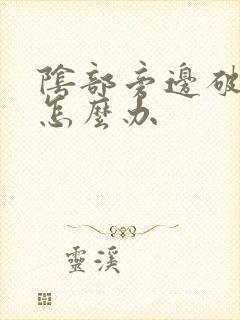 陰部旁邊破
怎麼办
靈溪